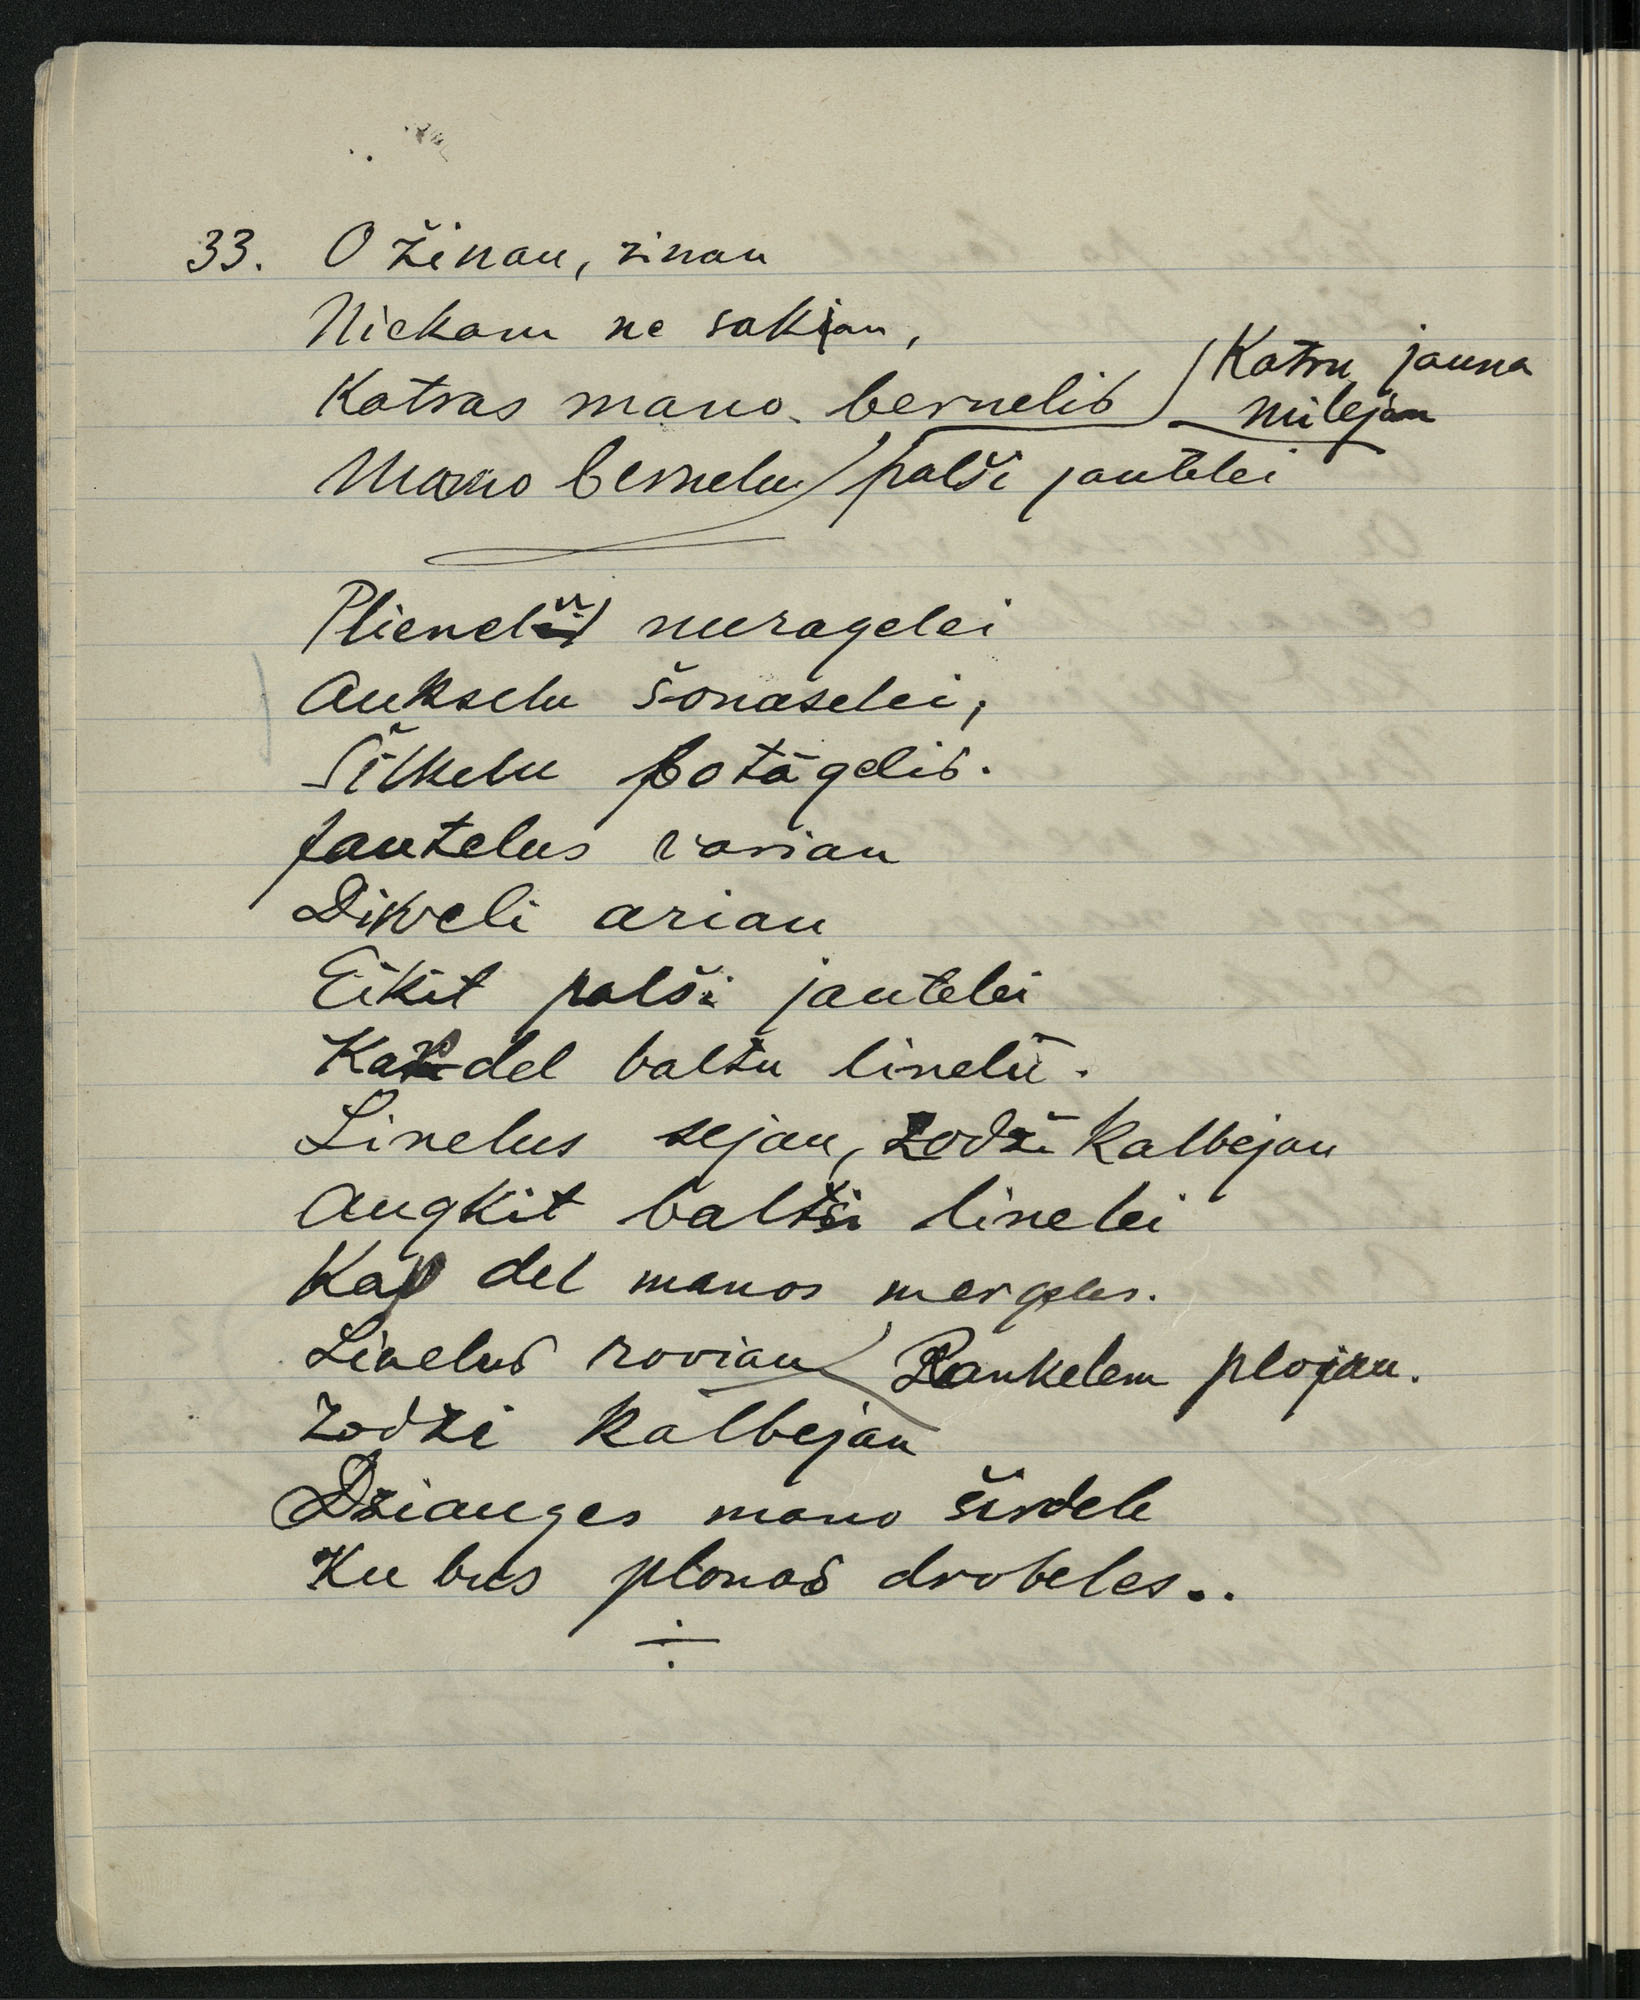 33. O žinau, zinau
Niekam ne sakiau,
Katras mano bernelis
Katru jauna
milejau
Mano bernelu palši jautelei
Plienelu nuragelei
Aukselu šonaselei,
Šilkelu botagelis.
Jautelus variau
Dirveli ariau
Eikit palši jautelei
Kap del baltu linelu.
Linelus sejau, zodži kalbejau
Augkit balti linelei
Kap del manos mergeles.
Linelus roviau Rankelem plojau.
Zodži kalbejau
Dziauges mano širdele
Ku bus plonos drobeles..